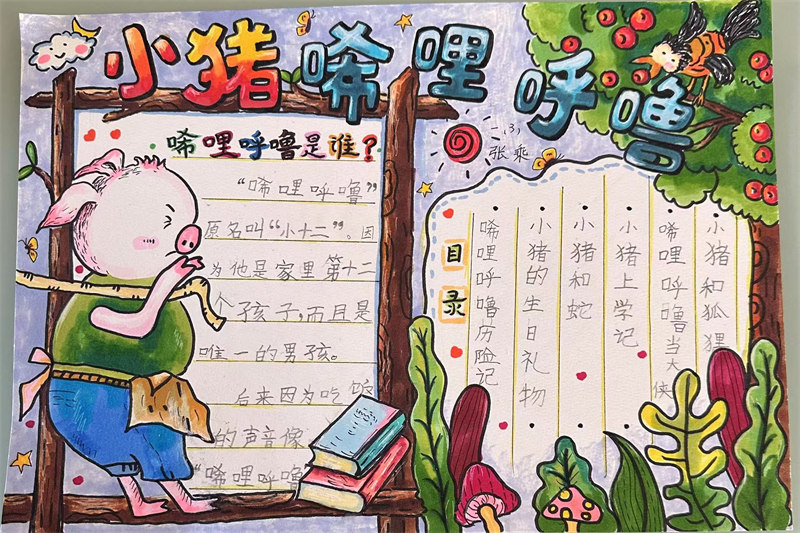 小猪唏哩呼噜
二、3)
张乘
唏哩呼噜是谁?
“唏哩呼噜”
原名叫“小十二”。因
为他是家里第十二
个孩子,而且是
唯一的男孩。
后来因为吃饭
的声音像
“唏哩呼噜
目录
唏哩呼噜历险记
小猪的生日礼物
小猪和蛇
小猪上学记
唏哩呼噜当大侠
小猪和狐狸